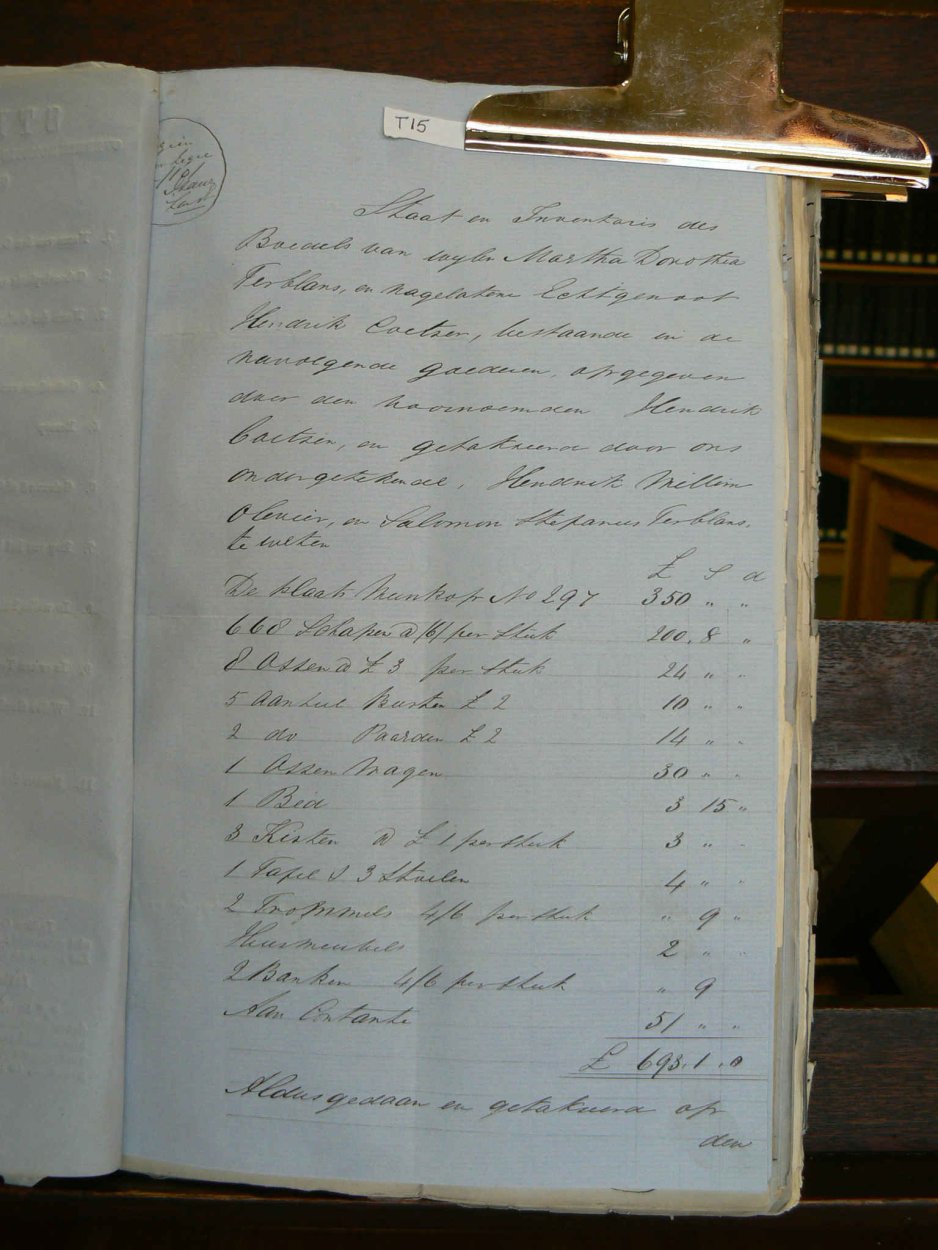 T15
Staat en Inventaris des
Boedels van wylen Martha Dorothea
Terblans, en nagelatene Echtgenoot
Hendrik Coetser, bestaande in de
navolgende goederen, opgegeven
door den voornoemden Hendrik
Coetsen, en getakseerd door ons
ondergetekende, Hendrik Willem
Olevier, en Salomon Stefanus Terblans,
te weten
£ S d
De plaats No 297 350 " "
668 Schapen @ /6/ per stuk 200. 8 "
8 Ossen @ £ 3 per stuk 24 " "
5 aanteel Beesten £ 2 10 " "
2 do Paarden £ 2 14 " "
1 Ossen Wagen 30 " "
1 Bed 3 15 "
3 Kisten @ £ 1 per stuk 3 " "
1 Tafel & 3 Stoelen 4 " "
2 Trommels 4/6 per stuk " 9 "
Huismeubels 2 " "
2 Banken 4/6 per stuk " 9
Aan Contante 51 " "
£ 693. 1. 0
Aldus gedaan en getakseerd op
den